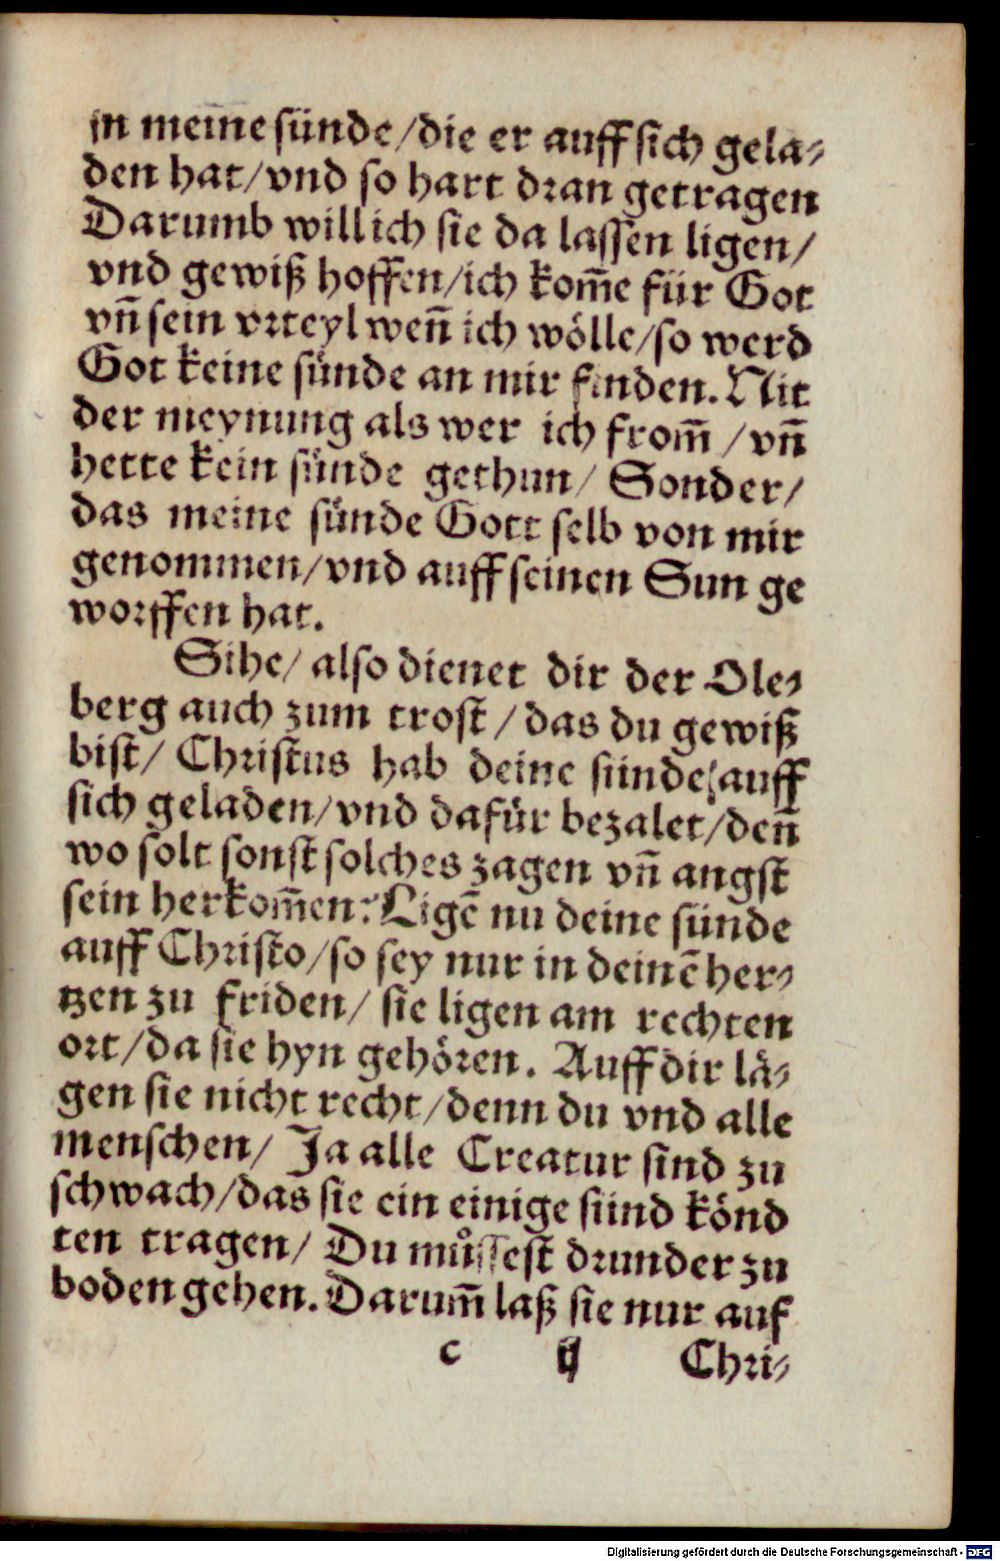 in meine sünde/die er auff sich gela⸗
den hat/vnd so hart dran getragen
Darumb will ich sie da lassen ligen/
vnd gewiß hoffen/ich kom̄e für Got
vn̄ sein vrteyl wen̄ ich wölle/so werd
Got keine sünde an mir finden. Nit
der meynung als wer ich from̄ /vn̄
hette kein sünde gethun/ Sonder/
das meine sünde Gott selb von mir
genommen/vnd auff seinen Sun ge
worffen hat.
Sihe/ also dienet dir der Ole⸗
berg auch zum trost /das du gewiß
bist/ Christus hab deine sünde auff
sich geladen/vnd dafür bezalet/den̄
wo solt sonst solches zagen vn̄ angst
sein herkom̄en? Ligē nu deine sünde
auff Christo/so sey nur in deinē her⸗
tzen zu friden/ sie ligen am rechten
ort/da sie hyn gehören. Auff dir lä⸗
gen sie nicht recht/denn du vnd alle
menschen/ Ja alle Creatur sind zu
schwach/das sie ein einige sünd könd
ten tragen/ Du můssest drunder zu
boden gehen. Darum̄ laß sie nur auf
c ij Chri⸗
Digitalisierung gefördert durch die Deutsche Forschungsgemeinschaft - DFG